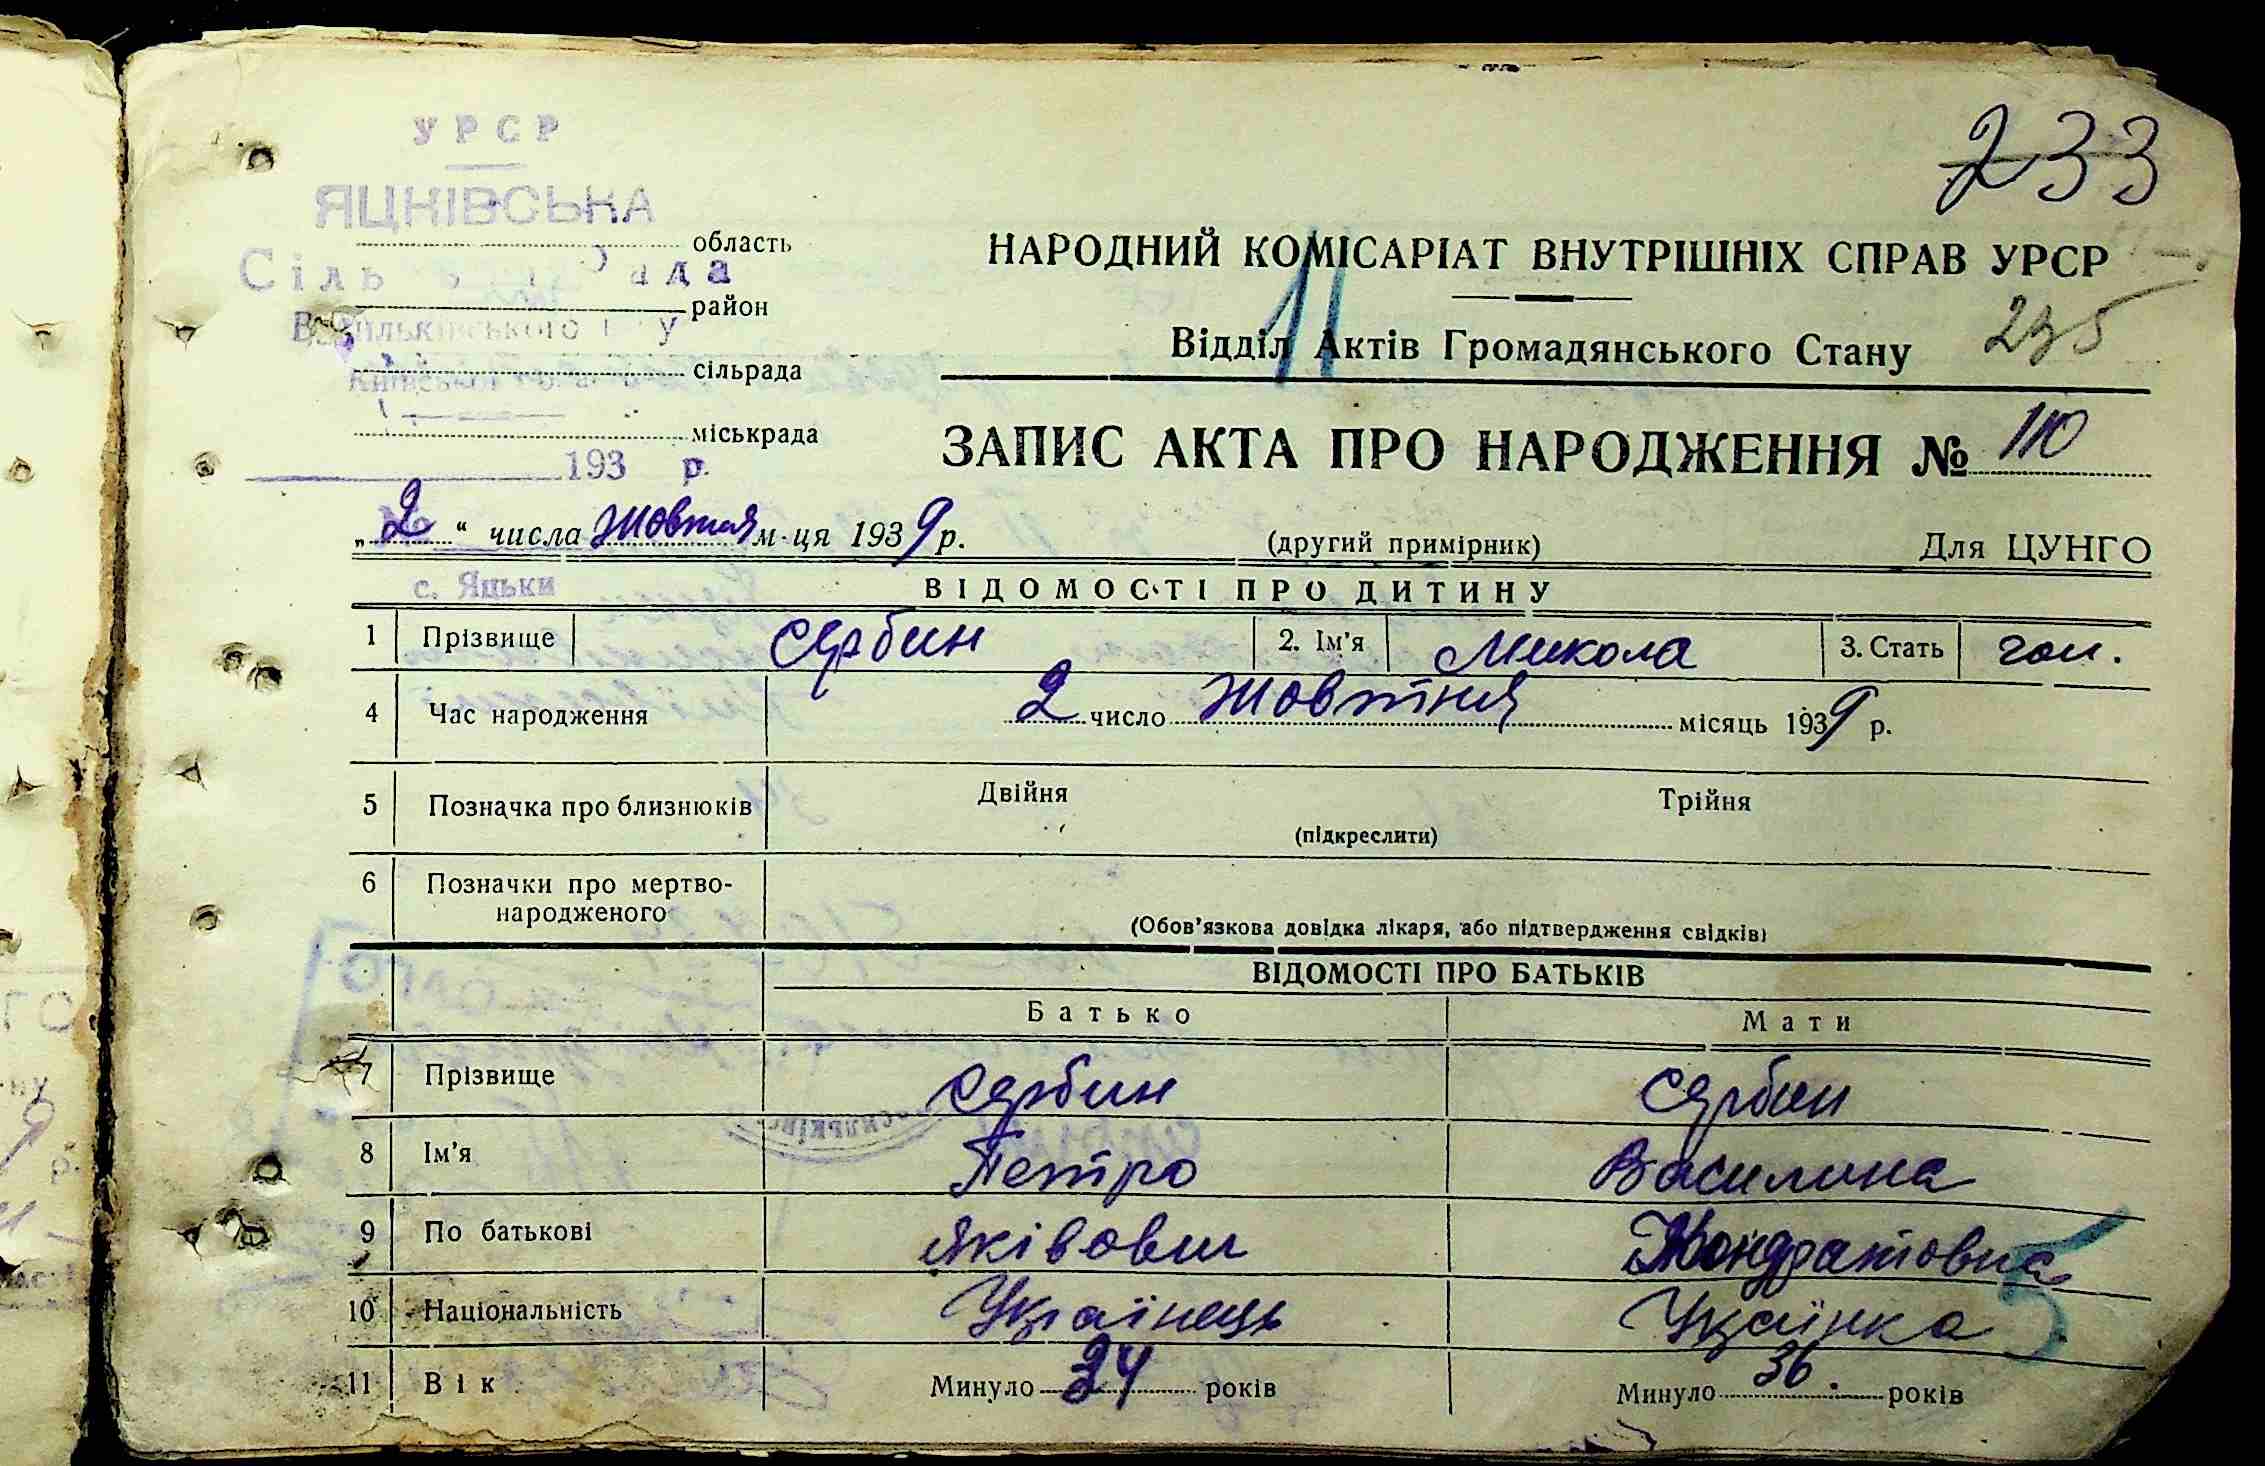 233
УРСР
ЯЦКІВСЬКА
область
Сіль Рада
район
сільрада
міськрада
193 р.
НАРОДНИЙ КОМІСАРІАТ ВНУТРІШНІХ СПРАВ УРСР
11
Відділ Актів Громадянського Стану
235
ЗАПИС АКТА ПРО НАРОДЖЕННЯ № 110
„2“ числа Жовтня м-ця 1939 р. (другий примірник) Для ЦУНГО
с. Яцьки
ВІДОМОСТІ ПРО ДИТИНУ
1 Прізвище Сербин 2. Ім'я Микола 3. Стать чол.
4 Час народження 2 число Жовтня місяць 1939 р.
5 Позначка про близнюків Двійня Трійня
(підкреслити)
6 Позначки про мертво-
народженого
(Обов'язкова довідка лікаря, або підтвердження свідків)
ВІДОМОСТІ ПРО БАТЬКІВ
Батько Мати
7 Прізвище Сербин Сербин
8 Ім'я Петро Василина
9 По батькові Яківович Кондратовна
10 Національність Українець Українка
11 Вік Минуло 34 років Минуло 36. років